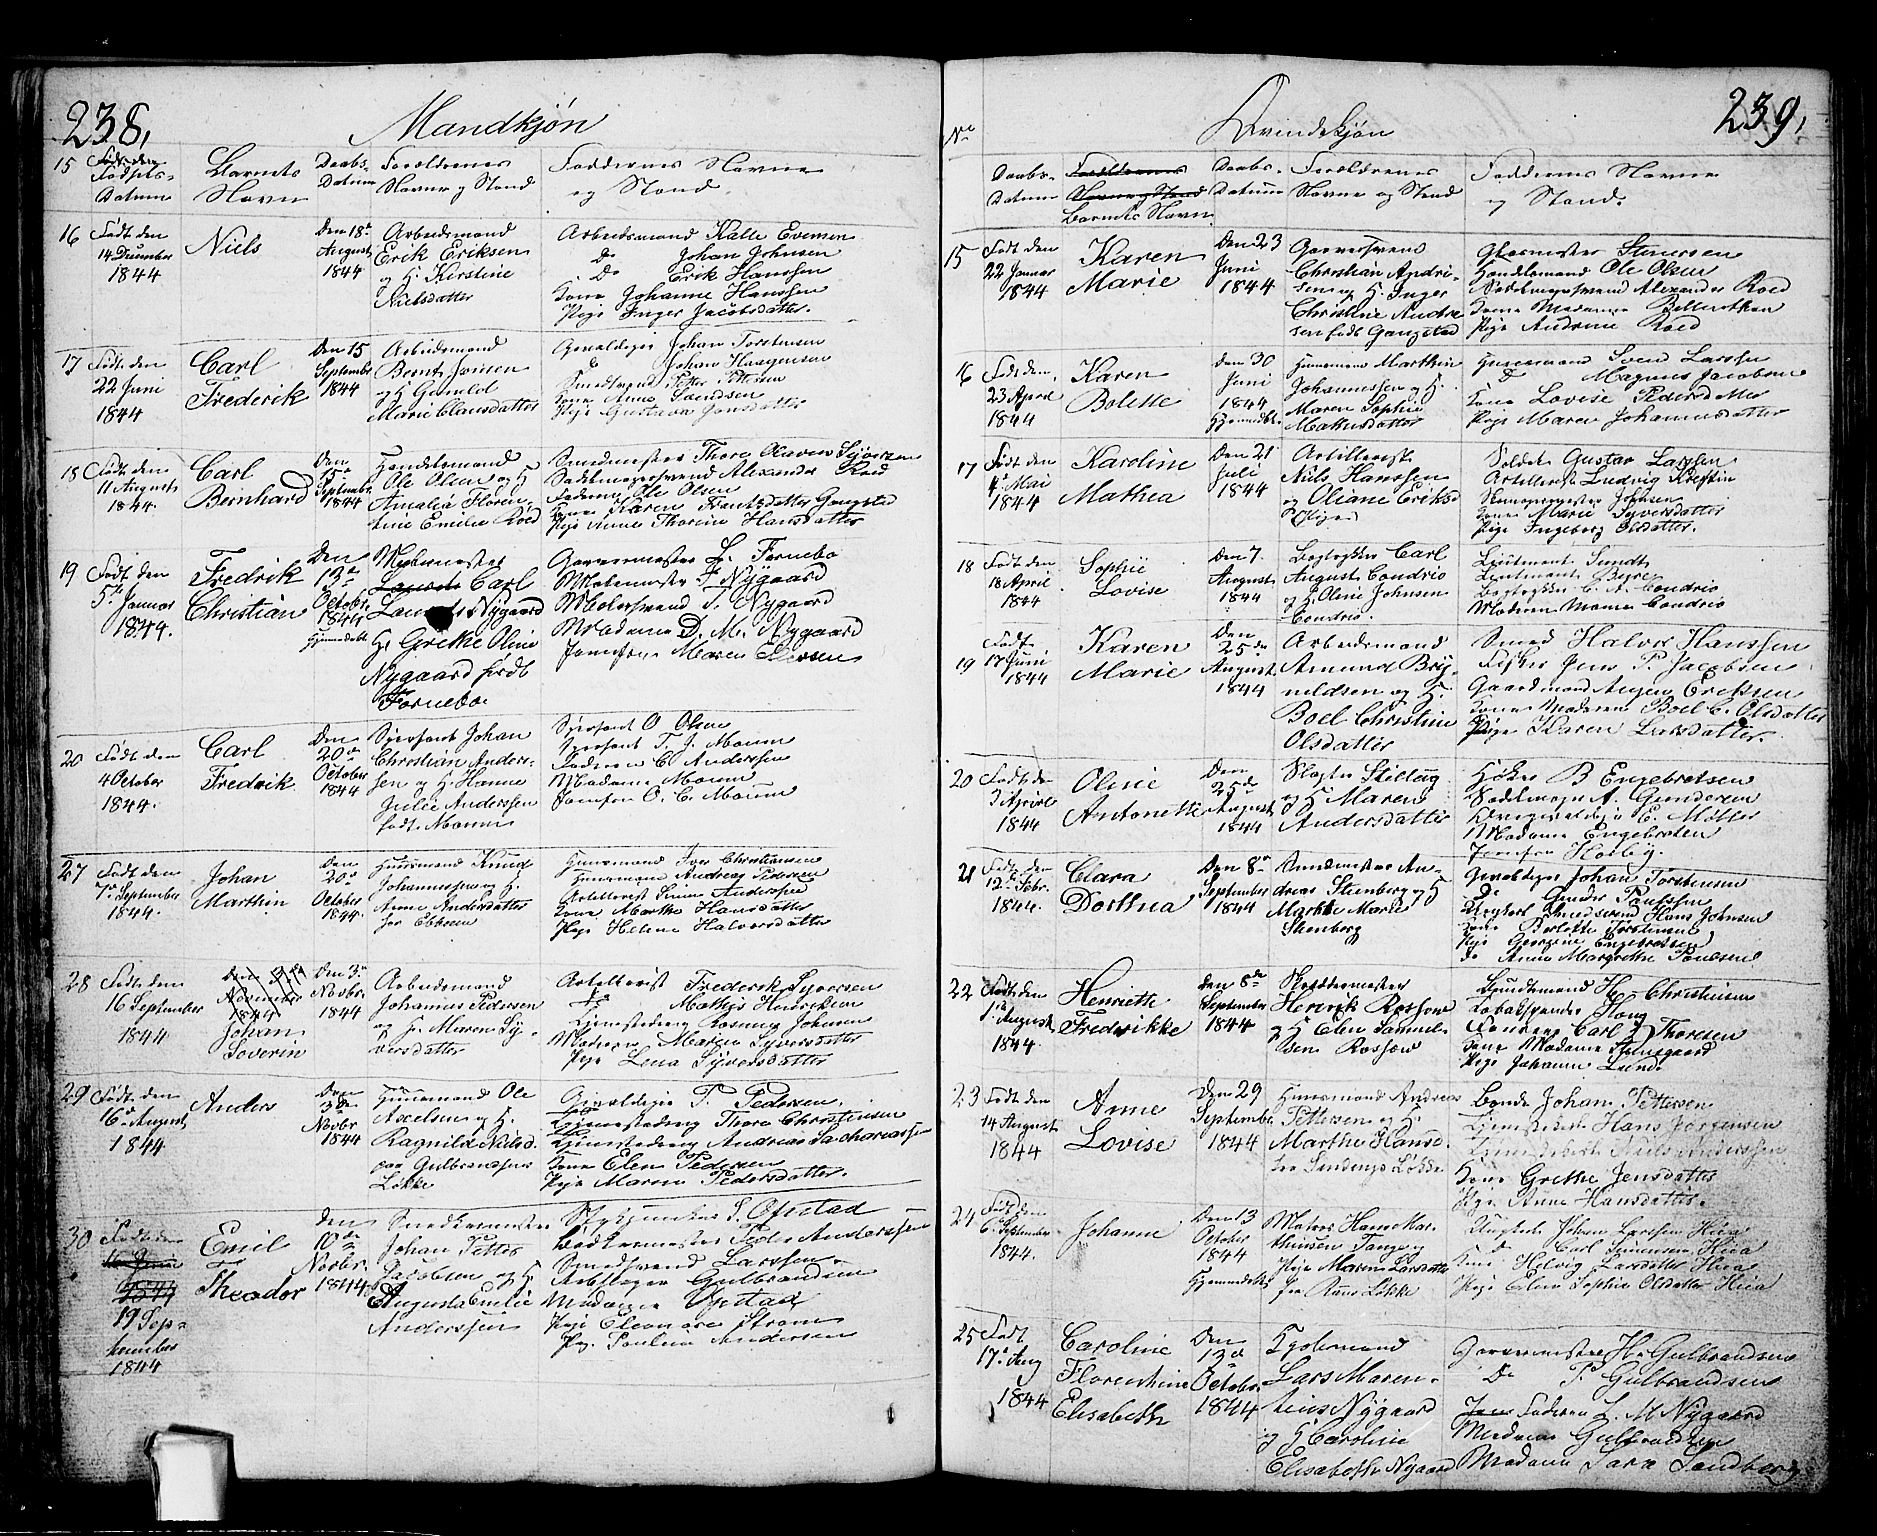 238,
Mandkjøn
15 Født den
Fødsels-
Datum
Barnets
Navn
Daabs-
Datum
Forældrenes
Navne og Stand
Faddernes Navne
og Stand
16 Født den
14 December
1844
Niels
Den 18de
August
1844
Arbeidsmand
Erik Eriksen
og H. Kirstine
Nielsdatter
Arbeidsmand Kalle Evensen
Do Johan Johnsen
Do Erik Hanssen
Kone Johanne Hanssen
Pige Inger Jacobsdatter.
17 Født den
22 Juni
1844
Carl
Frederik
Den 15
September
1844
Arbeidsmand
Bernt Jensen
og H Gunild
Marie Clausdatter
Johan Torstensen
d Johan Haagensen
Smedsvend Petter Pettersen
Kone Anne
Pige Gustava Jonsdatter
18 Født den
11 August
1844.
Carl
Bernhard
Den
15de
Septembr.
1844
Handelsmand
Ole Olsen og H
Amalia Floren-
tine Emilie Roed
Smedmester Thore Olavus Syversen
Sadelmagersvend Alexander Roed
Faderen Ole Olsen
Kone Karen Frantsdatter Gangstad
Pige Anne Thorine Hansdatter
19 Født den
5te Januar
1844.
Fredrik
Christian
Den
13de
Octobr.
1844
Hjemmedøbt
Carl
Nygaard
H. Grethe Oline
Nygaard født
Fornebo.
Garvermester L. Fornebo
F. Nygaard
T. Nygaard
Madame D. M. Nygaard
Jomfrue Maren
20 Født den
4 October
1844.
Carl
Fredrik
Den
20de
October
1844
Sjersant Johan
Christian Anders-
sen og H Hanne
Julie Anderssen
født Moum
Sjersant O. Olsen
Sjersant T. J. Moum
Faderen C. Anderssen
Madame Moum
Jomfru O. C. Moum
27 Født den
7de September
1844.
Johan
Marthin
Den
20de
October
1844.
Huusmand Knud
Johannessen og H.
Anne Andersdatter
Huusmand Iver Christiansen
Huusmand Andreas Pedersen
Artillerist Simen Anderssen
Kone Marthe Hansdatter
Pige Helene Halvorsdatter
28 Født den
16 September
1844
Johan
Soverin
Den 3de
Novbr.
1844
Arbeidsmand
Johannes Pedersen
og H. Maren Sy-
versdatter
Artillerist Frederik Syversen
Mathis Hendriksen
Tjenestedreng Rasmus Johnsen
Maren Syversdatter
Pige Lena Syversdatter
29 Født den
6te August
1844
Anders
Den
3de
Novbr
1844
Huusmand Ole
Axelsen og H.
Ragnild Nilsd.
paa Gulbransens
Løkke
T. Pedersen
Tjenestedreng Thore Christensen
Tjenestedreng Andreas Zachariassen
Kone Elen Pedersen
Pige Maren Pedersdatter.
30 Født den
19 Sep-
tember
1844
Emil
Theodor
Den
10de
Novbr.
1844
Johan Petter
Jacobsen og H.
Augusta Emilie
Anderssen
S. Opstad
Peder Anderssen
Smedsvend Larssen
Gulbrandsen
Madame Opstad
Pige Eleonore Strøm
Pig. Pauline Andersen
239,
No
Qvindekjøn
Daabs-
Datum
Forældrenes
Navne og Stand
Barnets Navn
Daabs-
Datum
Forældrenes
Navne og Stand
Faddernes Navne
og Stand.
15 Født den
22 Januar
1844
Karen
Marie
Den 23
Juni
1844
Garversvend
Christian Andri-
sen og H. Inger
Christine Andre
sen født Gangstad
Glasmester
Handelsmand Ole Olsen
Sadelmagersvend Alexander Roed
Kone Madame
Pige Andrine Roed
16 Født den
23 April
1844
Karen
Bolette
Den 30
Juni
1844
Hjemmedøbt
Huusmand Marthin
Johannessen og H.
Maren Sophie
Mathisdatter
Huusmand Svend Larssen
D Magnus Jacobsen
Kone Lovise Pedersdatter
Pige Maren Johannesdatter
17 Født den
4de Mai
1844
Karoline
Mathea
Den 21
Juli
1844
Artillerist
Nils Hanssen
og Oliane Eriksd
(Pige)
Soldat Gustav Larssen
Artillerist Ludvig
Johnsen
Kone Marie Syversdatter
Pige Ingeborg Olsdatter.
18 Født den
18 April
1844
Sophie
Lovise
Den 7.
August
1844
Bogtrykker Carl
August Condrio
og H. Oline Johnsen
Condrio.
Lieutenant Sundt
Lieutenant
Bogtrykker C. A. Condrio
Moderen Mome Condrio
19 Født
17 Juni
1844
Karen
Marie
Den
25de
August
1844
Arbeidsmand
Amund Bry-
nildsen og H.
Boel Christine
Olsdatter
Smed Halvor Hanssen
Fisker Jens P. Jacobsen
Gaardmand Eriksen
Kone Moderen Boel C. Olsdatter
Pige Karen Larsdatter.
20 Født den
3 April
1844
Oline
Antonette
Den
25de
August
1844
Slagter Stillug
og H Maren
Andersdatter
Høker B Engebretsen
Sadelmager A. Gundersen
E. Møller
Madame Engebretsen
Jomfru
21 Født den
12te Febr.
1844.
Clara
Dorthea
Den 8de
September
1844
Smedmester An-
dreas Stenberg og H
Marthe Marie
Stenberg
Johan Torstensen
Do Gunder Paulssen
Ungkarl Smedsvend Hans Johnsen
Kone Berthe Torstensen
Pige Georgine Engebretsen
do Anne Margrethe Poulsen
22 Født den
1te August
1844.
Henriette
Frederikke
Den 8de
September
1844
Skrædermester
Henrik Rossow
og H Elen Samuel-
sen Rossow
H. Christensen
Tobakspinder Houg
Faderen Carl J Thoresen
Kone Madame
Pige Johanne Lund.
23 Født den
14 August
1844
Anne
Lovise
Den 29
September
1844
Huusmand Andreas
Pettersen og H.
Marthe Hansd.
Bonde Johan Pettersen
Tjenestekarl Hans Jørgensen
Tjenestekarl Niels Anderssen
Kone Grethe Jensdatter
Pige Anne Hansdatter.
24 Født den
6te September
1844.
Johanne
Den 13
October
1844
Hjemmedøbt
Matros Hans Mar-
thinsen Tange og
Pige Maren Larsdatter
Løkke
Johan Larssen Huia
D Carl Simensen Huia
Kone Helvig Larsdatter Huia
Pige Elen Sophie Olsdatter Huia
25 Født
17de Aug
1844
Caroline
Florentine
Elisabeth
Den
13de
Octobr.
1844
Lars Maren-
tius Nygaard
og H Caroline
Elisabeth Nygaard
Garvermester H. Gulbrandsen
Do P. Gulbrandsen
Faderen L. M Nygaard
Madame Gulbrandsen
Madame Sara Sandberg